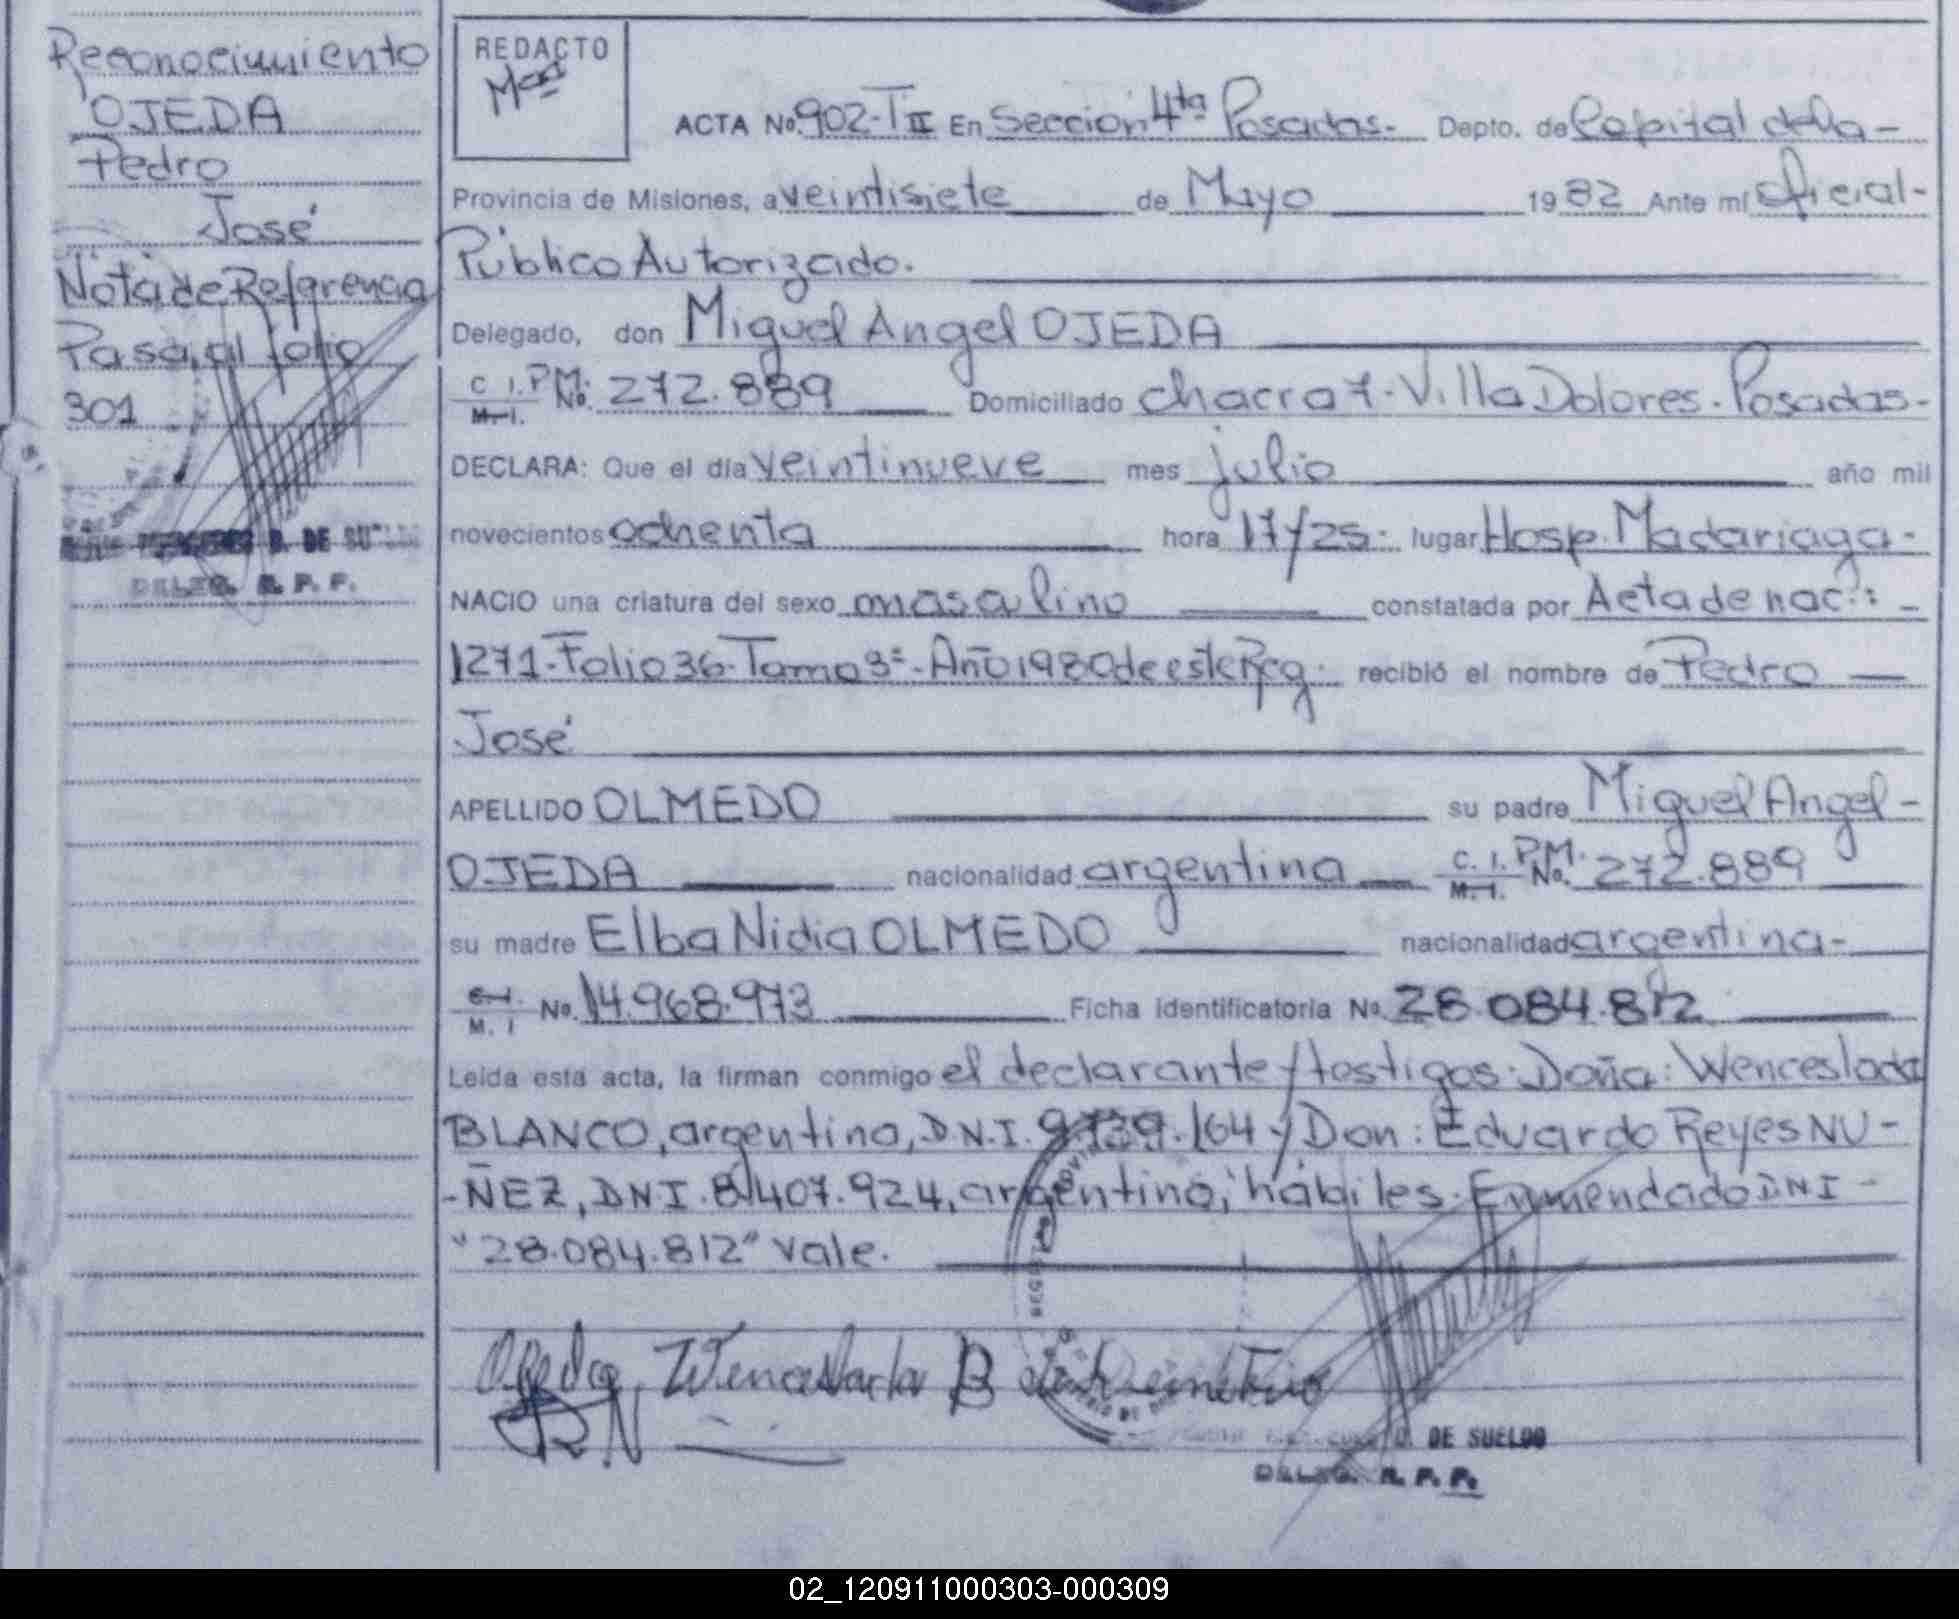 Reconocimiento
OJEDA
Pedro
José
Nota de Referencia
Pasa al folio
301
D. DE SU
DELEG. R. P. P.
REDACTO
ACTA No. 902-T II En Sección 4ta Posadas.- Depto. de Capital de la-
Provincia de Misiones, a veintisiete de Mayo 1982 Ante mí Oficial-
Público Autorizado.
Delegado, don Miguel Angel OJEDA
C. I. P.M. M. I. No. 272.889 Domiciliado chacra 7. Villa Dolores. Posadas-
DECLARA: Que el día veintinueve mes julio año mil
novecientos ochenta hora 17/25. lugar Hosp. Madariaga-
NACIO una criatura del sexo masculino constatada por Acta de nac.: -
1271-Folio 36-Tomo 3º-Año 1980 de este Reg. recibió el nombre de Pedro
José
APELLIDO OLMEDO su padre Miguel Angel-
OJEDA nacionalidad argentina C. I. P.M. M. I. No. 272.889
su madre Elba Nidia OLMEDO nacionalidad argentina-
C. I. M. I No. 14.968.973 Ficha identificatoria No. 28.084.812
Leída esta acta, la firman conmigo el declarante y testigos: Doña: Wenceslada
BLANCO, argentina, D.N.I. 9.739.164 y Don: Eduardo Reyes NU-
-ÑEZ, DN.I. 8.407.924, argentino, hábiles. Enmendado DNI-
"28.084.812" vale.
Ojeda Wenceslada B de
D. DE SUELDO
DELEG. R. P. P.
02_120911000303-000309